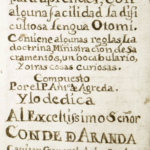 para aprender, con
alguna facilidad la difi
cultosa lengua Otomi.
Contiene algunas reglas, la
doctrina, Ministracion de Sa
cramentos, un bocabulario,
y otras cosas curiosas.
Compuesto
Por el P. Ant. Agreda.
Y lo dedica
Al Excelltisimo Señor
CONDE D ARANDA